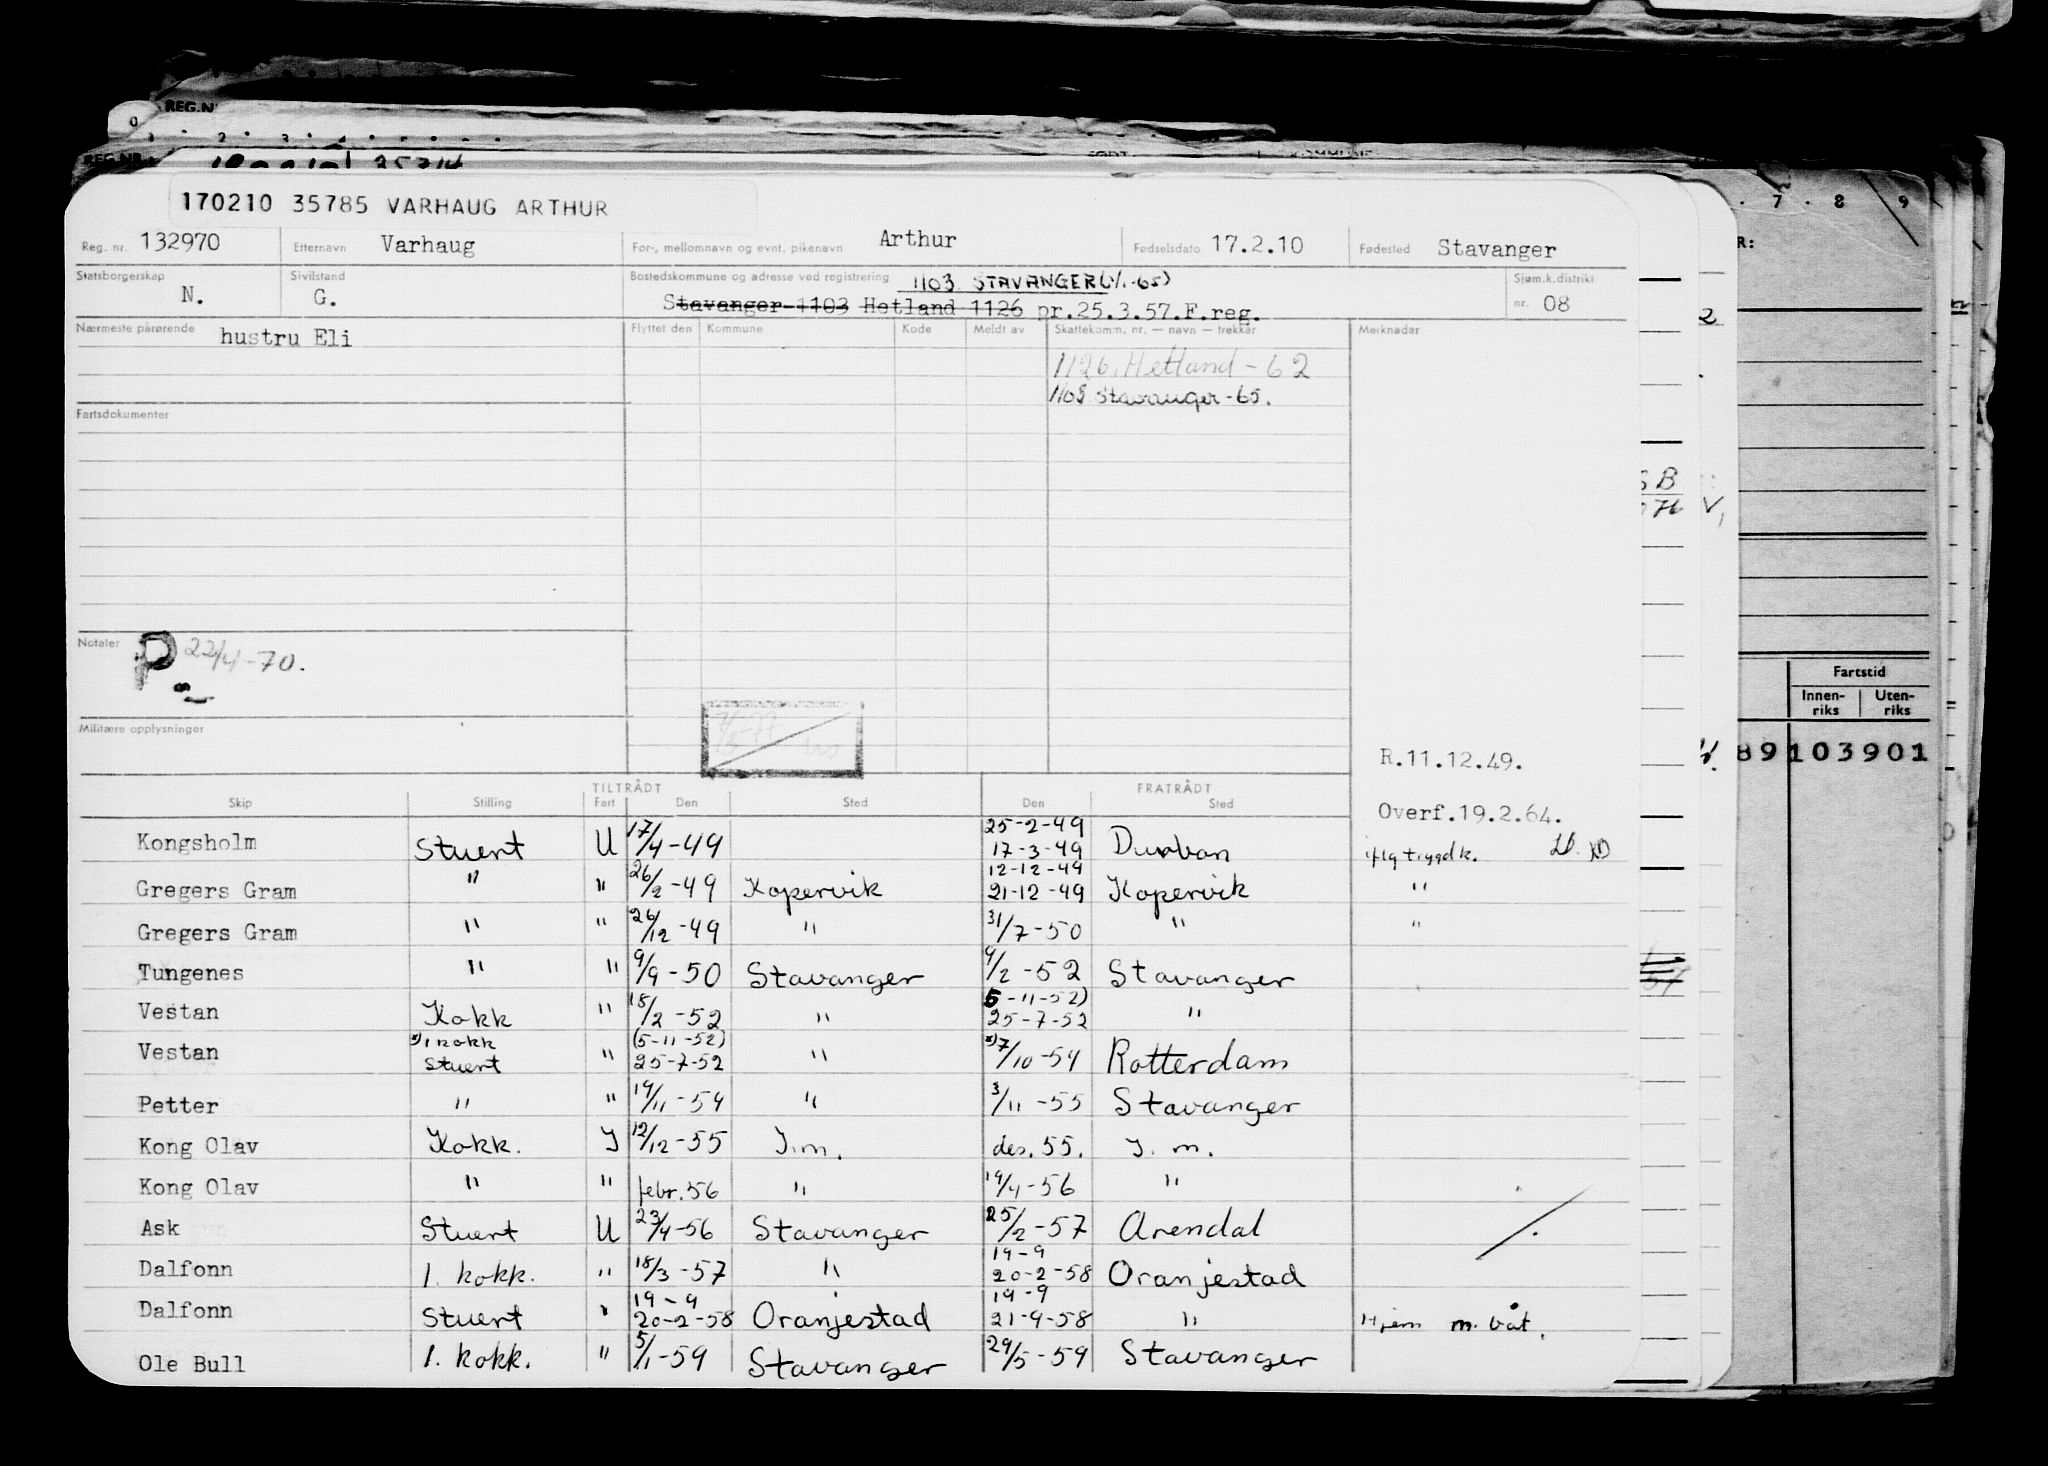 REG.N
170210 35785 VARHAUG ARTHUR
Reg. nr. 132970 Etternavn Varhaug For-, mellomnavn og evnt. pikenavn Arthur Fødselsdato 17.2.10 Fødested Stavanger
Statsborgerskap N. Sivilstand G. Bostedskommune og adresse ved registrering 1103 STAVANGER (1/1-65) Sjøm.k.distrikt
Stavanger 1103 Hetland 1126 pr.25.3.57.F.reg. nr. 08
Nærmeste pårørende hustru Eli Flyttet den Kommune Kode Meldt av Skattekomm. nr. — navn — trekkår Merknader
1126. Hetland - 62
1103 Stavanger - 65.
Fartsdokumenter
Notater P 22/4-70.
Militære opplysninger
R.11.12.49.
TILTRÅDT FRATRÅDT
Skip Stilling Fart Den Sted Den Sted
Overf.19.2.64.
Kongsholm Stuert U 17/4-49 25-2-49 17-3-49 Durban iflg trygdk.
Gregers Gram " " 26/2-49 Kopervik 12-12-49 21-12-49 Kopervik "
Gregers Gram " " 26/12-49 " 31/7-50 " "
Tungenes " " 9/9-50 Stavanger 9/2-52 Stavanger
Vestan Kokk " 18/2-52 " 5-11-52) 25-7-52 "
Vestan 1 kokk Stuert " (5-11-52) 25-7-52 " 7/10-54 Rotterdam
Petter " " 19/11-54 " 3/11-55 Stavanger
Kong Olav Kokk. I 12/12-55 I.m. des. 55. I. m.
Kong Olav " " febr. 56 " 19/4-56 "
Ask Stuert U 23/4-56 Stavanger 25/2-57 Arendal
Dalfonn 1. kokk. " 18/3-57 " 19-9 20-2-58 Oranjestad
Dalfonn Stuert " 19-9 20-2-58 Oranjestad 19-9 21-9-58 " Hjem m. båt.
Ole Bull 1. kokk. " 5/1-59 Stavanger 29/5-59 Stavanger
7 · 8 9
Fartstid
Innen-riks Uten-riks
89103901